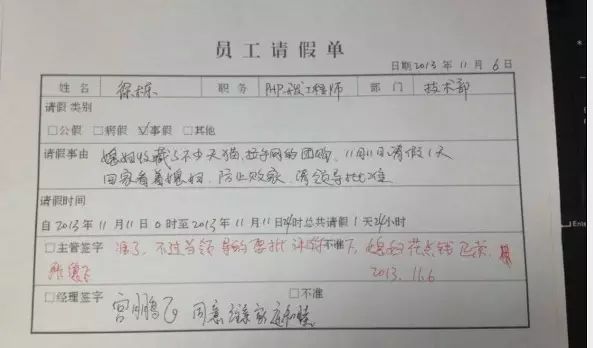 员工请假单
日期2013年11月6日
姓名 徐栋 职务 PHP开发工程师 部门 技术部
请假类别
□公假 □病假 ☑事假 □其他
请假事由 媳妇收藏了不少天猫,拉手网的团购,11月11日请假1天
回家看着媳妇,防止败家,请领导批准
请假时间
自2013年11月11日0时至2013年11月11日24时总共请假1天24小时
□主管签字 准了,不过当领导的要批评 □不准 下,媳妇花点钱
2013.11.6
□经理签字 宫鹏飞 同意 家庭和睦 □不准
Enter